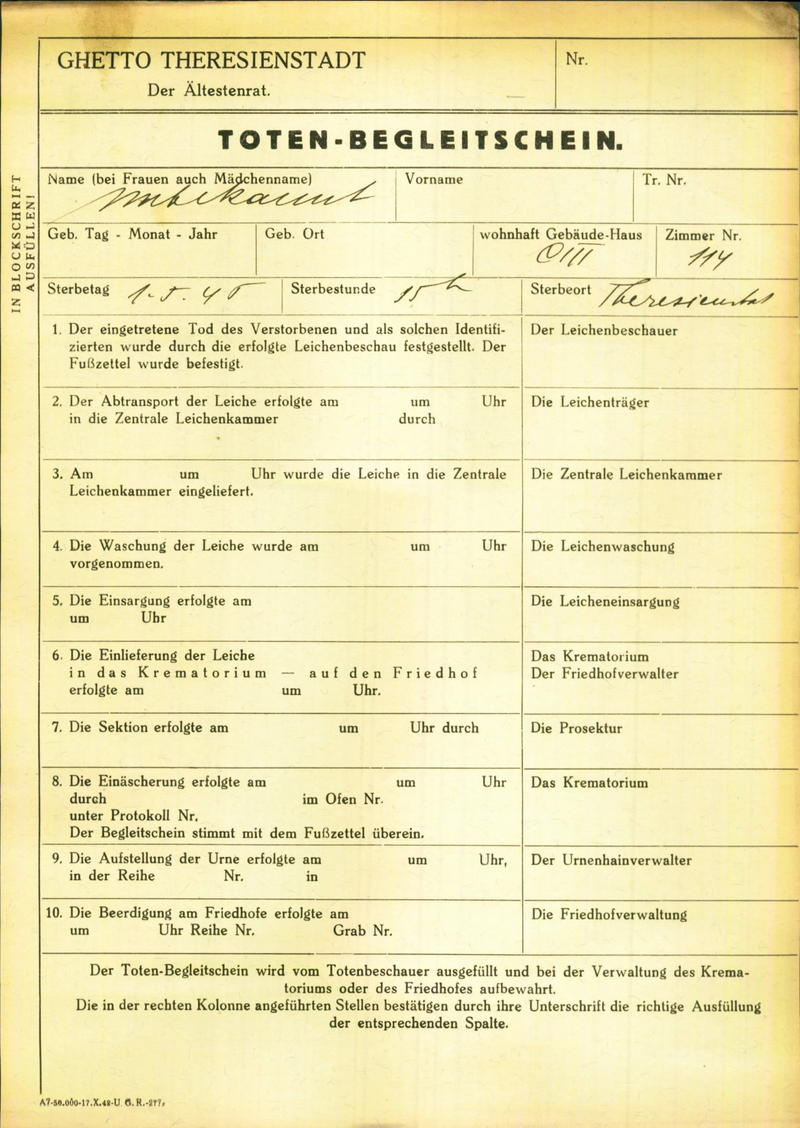 GHETTO THERESIENSTADT
Der Ältestenrat.
Nr.
TOTEN-BEGLEITSCHEIN.
IN BLOCKSCHRIFT
AUSFÜLLEN!
Name (bei Frauen auch Mädchenname)
Vorname
Tr. Nr.
unbekannt
Geb. Tag - Monat - Jahr
Geb. Ort
wohnhaft Gebäude-Haus
Zimmer Nr.
CIII
114
Sterbetag 1.5.45
Sterbestunde 15h
Sterbeort Theresienstadt
1. Der eingetretene Tod des Verstorbenen und als solchen Identifi-
zierten wurde durch die erfolgte Leichenbeschau festgestellt. Der
Fußzettel wurde befestigt.
Der Leichenbeschauer
2. Der Abtransport der Leiche erfolgte am um Uhr
in die Zentrale Leichenkammer durch
Die Leichenträger
3. Am um Uhr wurde die Leiche in die Zentrale
Leichenkammer eingeliefert.
Die Zentrale Leichenkammer
4. Die Waschung der Leiche wurde am um Uhr
vorgenommen.
Die Leichenwaschung
5. Die Einsargung erfolgte am
um Uhr
Die Leicheneinsargung
6. Die Einlieferung der Leiche
in das Krematorium — auf den Friedhof
erfolgte am um Uhr.
Das Krematorium
Der Friedhofverwalter
7. Die Sektion erfolgte am um Uhr durch
Die Prosektur
8. Die Einäscherung erfolgte am um Uhr
durch im Ofen Nr.
unter Protokoll Nr.
Der Begleitschein stimmt mit dem Fußzettel überein.
Das Krematorium
9. Die Aufstellung der Urne erfolgte am um Uhr,
in der Reihe Nr. in
Der Urnenhainverwalter
10. Die Beerdigung am Friedhofe erfolgte am
um Uhr Reihe Nr. Grab Nr.
Die Friedhofverwaltung
Der Toten-Begleitschein wird vom Totenbeschauer ausgefüllt und bei der Verwaltung des Krema-
toriums oder des Friedhofes aufbewahrt.
Die in der rechten Kolonne angeführten Stellen bestätigen durch ihre Unterschrift die richtige Ausfüllung
der entsprechenden Spalte.